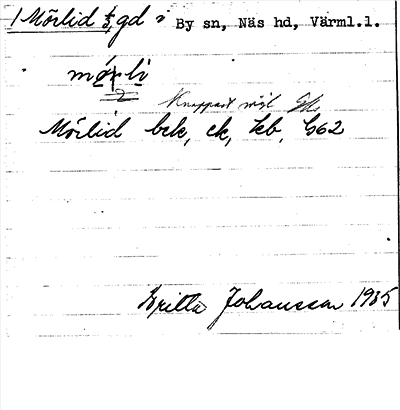 1 Mörlid 1/3, gd i By sn, Näs hd, Värml.l.
mørli
2 Knappast möjl
Mörlid bck, ek, kb, G62
Britta Johansson 1935